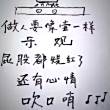 做人要像壶一样
乐观
屁股都烧红了
还有心情
吹口哨♪♫